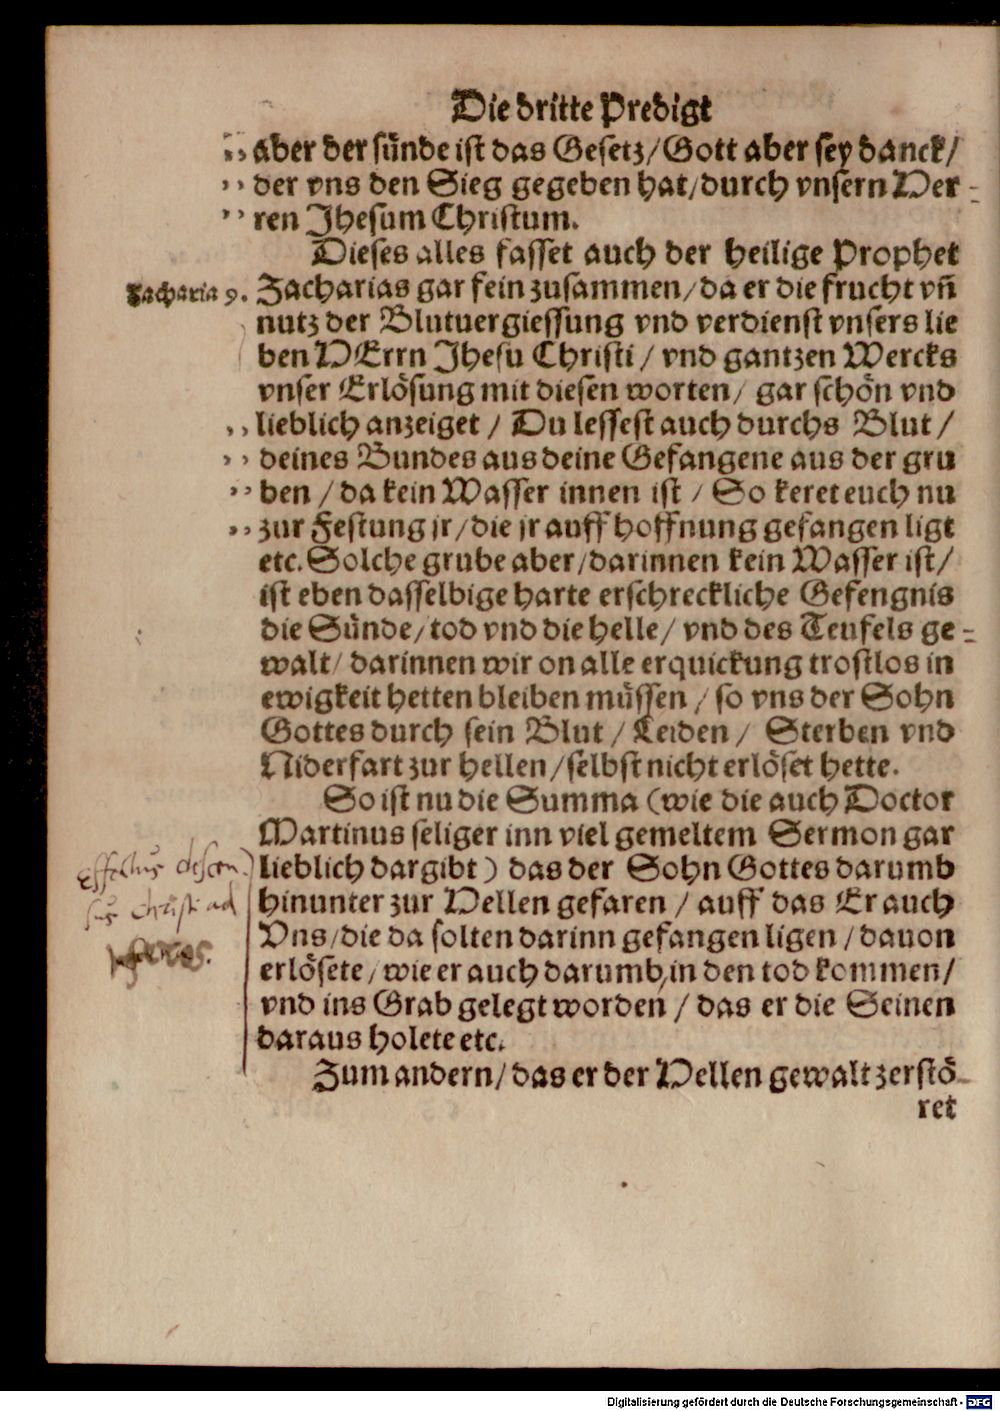 Die dritte Predigt
„ aber der sünde ist das Gesetz/Gott aber sey danck/
„ der vns den Sieg gegeben hat/durch vnsern Her-
„ ren Jhesum Christum.
Dieses alles fasset auch der heilige Prophet
Zacharia 9. Zacharias gar fein zusammen/da er die frucht vñ
nutz der Blutuergiessung vnd verdienst vnsers lie
ben HErrn Jhesu Christi / vnd gantzen Wercks
vnser Erlösung mit diesen worten/ gar schön vnd
„ lieblich anzeiget / Du lessest auch durchs Blut /
„ deines Bundes aus deine Gefangene aus der gru
„ ben / da kein Wasser innen ist / So keret euch nu
„ zur Festung jr/die jr auff hoffnung gefangen ligt
etc. Solche grube aber/darinnen kein Wasser ist/
ist eben dasselbige harte erschreckliche Gefengnis
die Sünde/tod vnd die helle/ vnd des Teufels ge-
walt/ darinnen wir on alle erquickung trostlos in
ewigkeit hetten bleiben müssen / so vns der Sohn
Gottes durch sein Blut / Leiden / Sterben vnd
Niderfart zur hellen/selbst nicht erlöset hette.
So ist nu die Summa (wie die auch Doctor
Martinus seliger inn viel gemeltem Sermon gar
lieblich dargibt) das der Sohn Gottes darumb
hinunter zur Hellen gefaren / auff das Er auch
Vns/die da solten darinn gefangen ligen / dauon
erlösete/wie er auch darumb,in den tod kommen/
vnd ins Grab gelegt worden / das er die Seinen
daraus holete etc.
Effectus descen-
sus Christi ad
inferos.
Zum andern/das er der Hellen gewalt zerstö-
ret
Digitalisierung gefördert durch die Deutsche Forschungsgemeinschaft - DFG